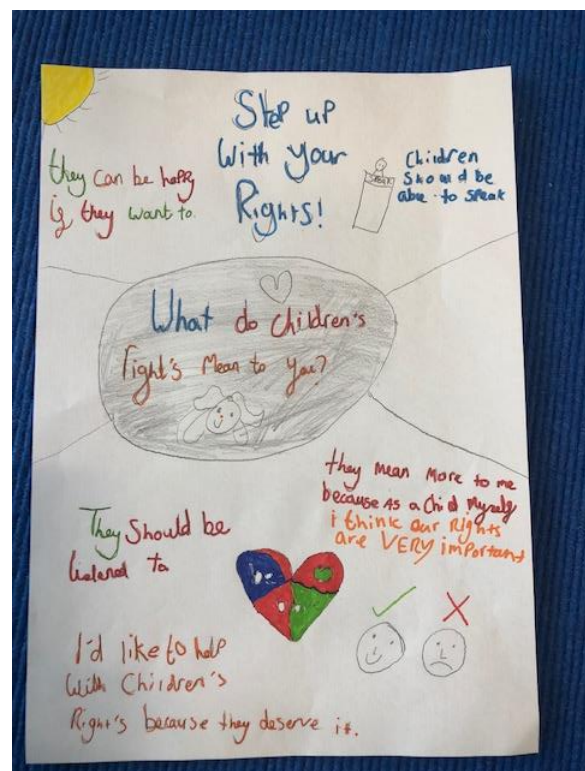 Step up
With your
Rights!
they can be happy
if they want to.
Children
should be
able to speak
What do children's
right's mean to you?
they mean more to me
because as a child myself
i think our rights
are VERY important
They should be
listened to
I'd like to help
with children's
Right's because they deserve it.